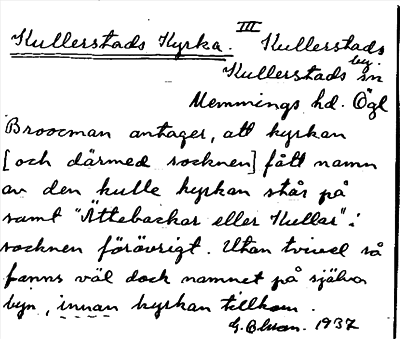 III
Kullerstads Kyrka. Kullerstads
by.
Kullerstads sn
Memmings hd. Ögl
Broocman antager, att kyrkan
[och därmed socknen] fått namn
av den kulle kyrkan står på
samt "Ättebackar eller Kullar" i
socknen förövrigt. Utan tvivel så
fanns väl dock namnet på själva
byn, innan kyrkan tillkom.
1937